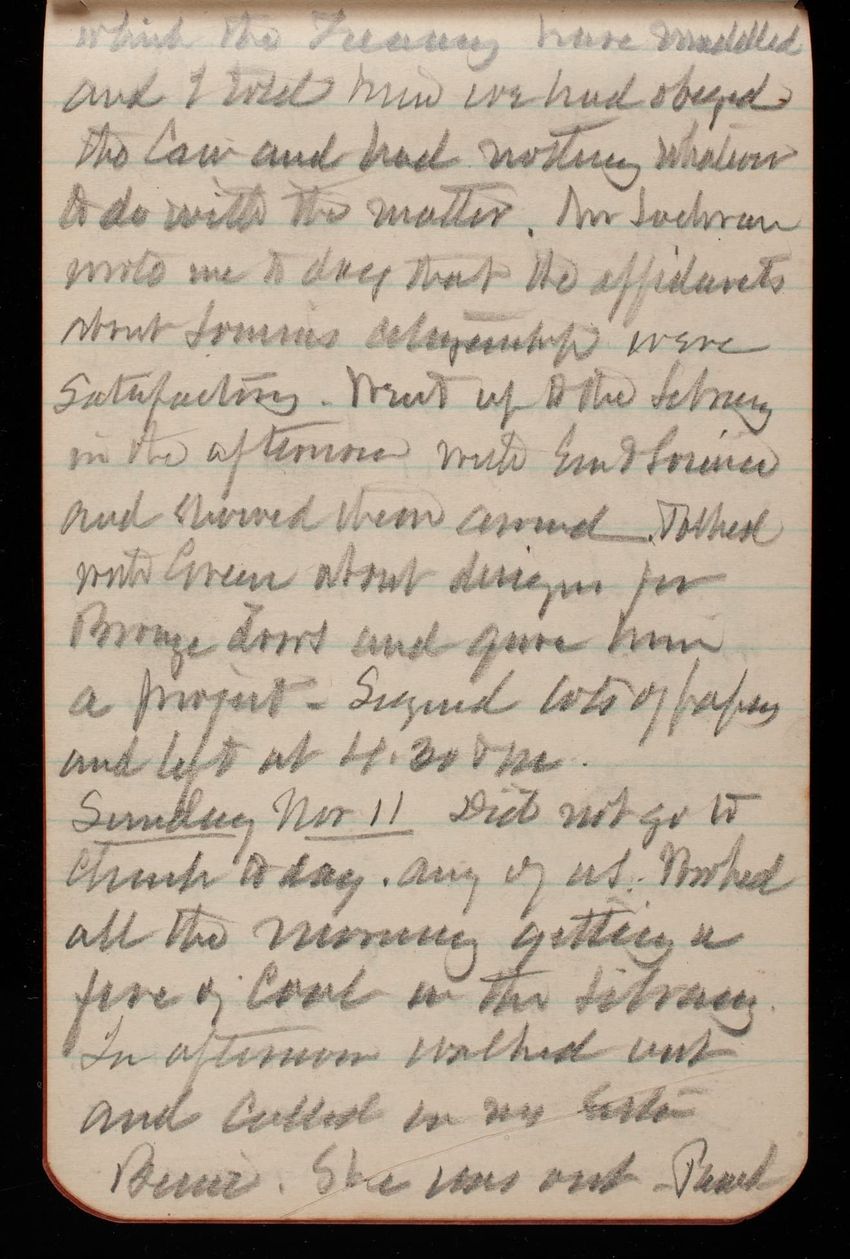 which the Treasury have muddled
and I told him we had obeyed
the law and had nothing whatever
to do with the matter. Mr Lochran
wrote me to day that the affidavits
about were
satisfactory. Went up to the Library
in the afternoon with Em & Louise
and showed them around. Talked
with Green about designs for
Bronze Doors and gave him
a project - Signed lots of papers
and left at 4.30 P M.
Sunday Nov 11 Did not go to
Church to day. any of us. Worked
all the morning getting a
fire of Coal in the Library.
In afternoon walked out
and called on
She was out